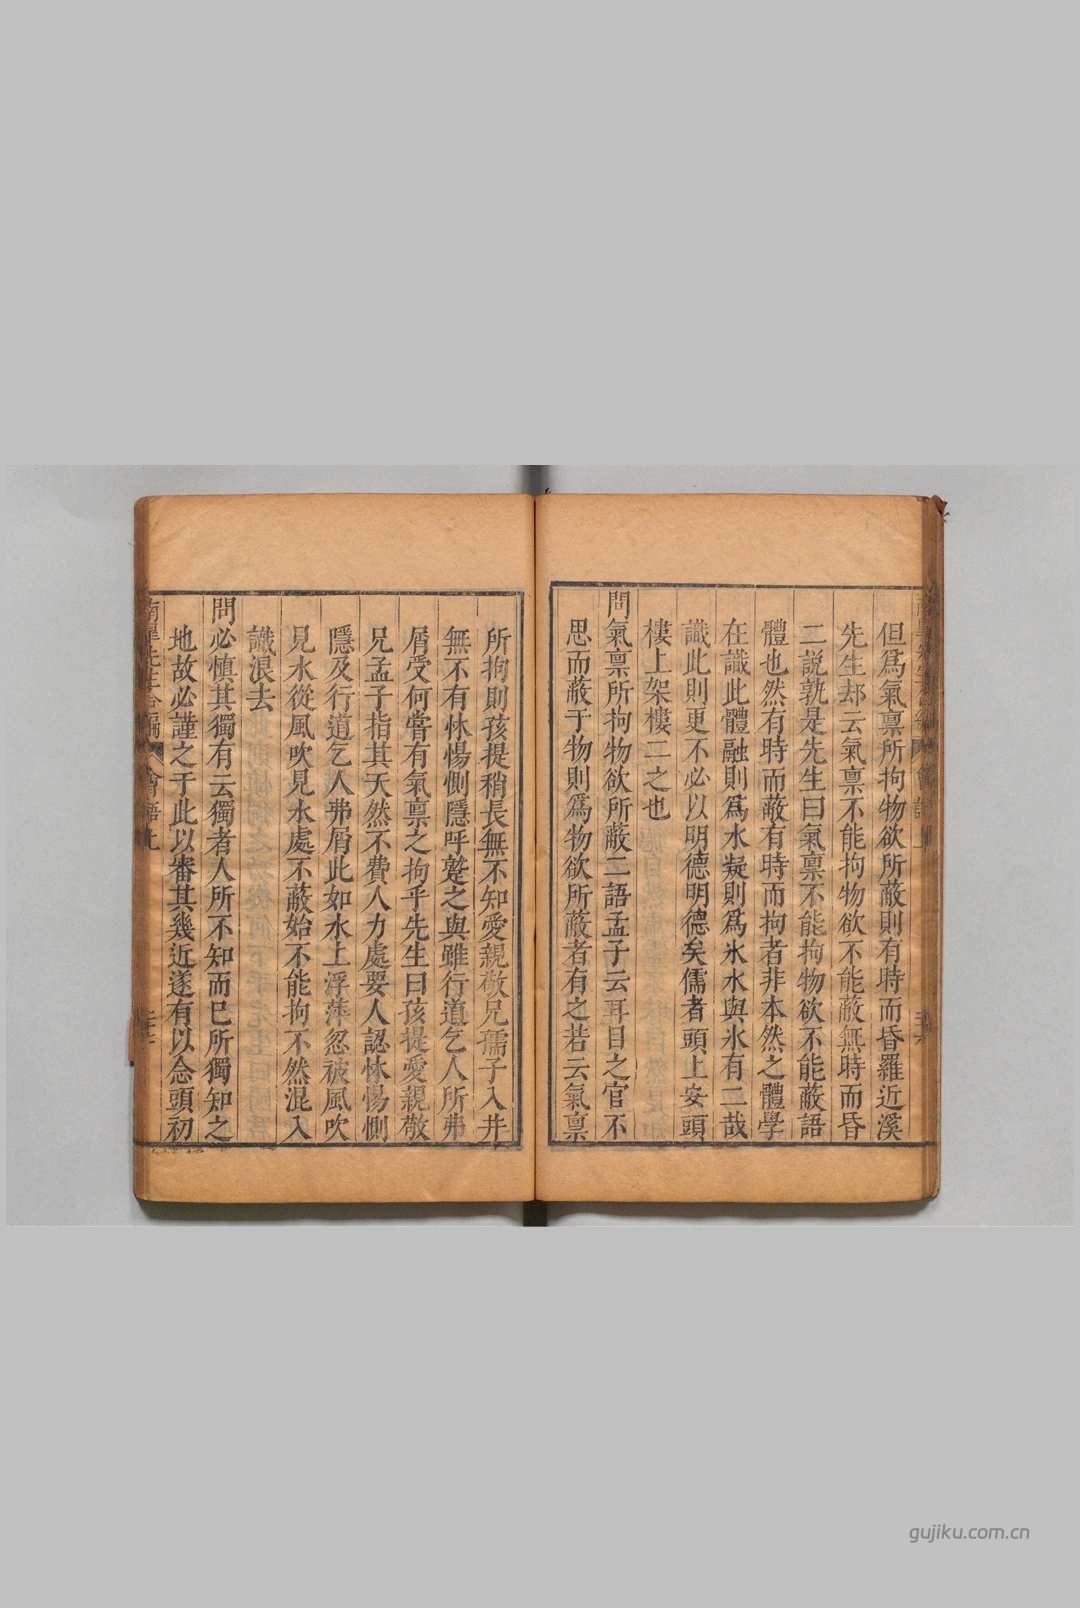 但爲氣禀所拘物欲所蔽則有時而昏羅近溪
先生却云氣禀不能拘物欲不能蔽無時而昏
二說孰是先生曰氣禀不能拘物欲不能蔽語
體也然有時而蔽有時而拘者非本然之體學
在識此體融則爲水凝則爲氷水與氷有二哉
識此則更不必以明德明德矣儒者頭上安頭
樓上架樓二之也
問氣禀所拘物欲所蔽二語孟子云耳目之官不
思而蔽于物則爲物欲所蔽者有之若云氣禀
所拘則孩提稍長無不知愛親敬兄孺子入井
無不有怵惕惻隱呼蹵之與雖行道乞人所弗
屑受何嘗有氣禀之拘乎先生曰孩提愛親敬
兄孟子指其天然不費人力處要人認怵惕惻
隱及行道乞人弗屑此如水上浮萍忽被風吹
見水從風吹見水處不蔽始不能拘不然混入
識浪去
問必慎其獨有云獨者人所不知而巳所獨知之
地故必謹之于此以審其幾近遂有以念頭初
先生合編
會語上
gujiku.com.cn